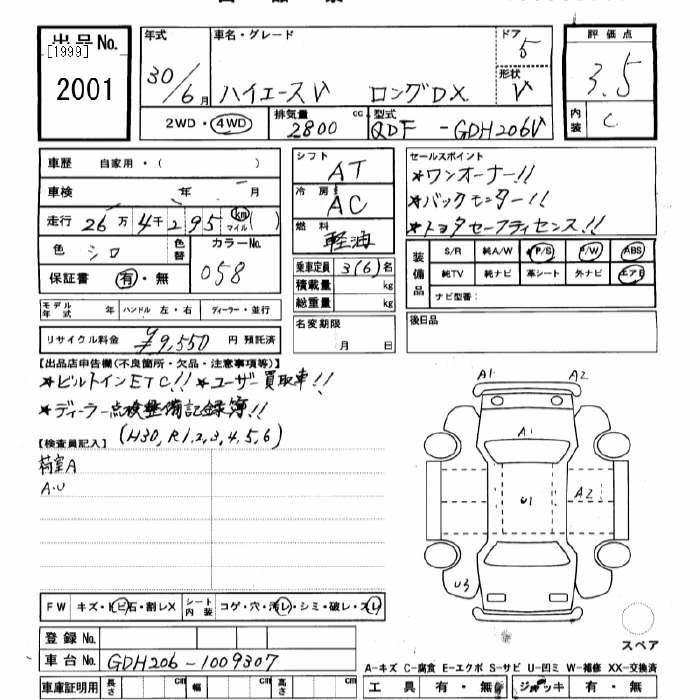 出品No. [1999] 2001
年式 30/6月
車名・グレード ハイエースV ロングDX
ドア 5
形状 V
評価点 3.5
内装 C
2WD・4WD
排気量 2800 cc
型式 QDF-GDH206V
車歴 自家用・( )
車検 年 月
走行 26万4千295 km マイル( )
色 シロ
色替
カラーNo. 058
保証書 有・無
シフト AT
冷房 AC
燃料 軽油
乗車定員 3(6)名
積載量 kg
総重量 kg
セールスポイント
★ワンオーナー!!
★バックモニター!!
★トヨタセーフティセンス!!
装備品 S/R 純A/W P/S P/W ABS
純TV 純ナビ 革シート 外ナビ エアB
ナビ型番:
モデル年式 年 ハンドル 左・右 ディーラー・並行
名変期限 月 日
後日品
リサイクル料金 ¥9,550 円 預託済
【出品店申告欄(不良箇所・欠品・注意事項等)】
★ビルトインETC!! ★ユーザー買取車!!
★ディーラー点検整備記録簿!!
(H30,R1,2,3,4,5,6)
【検査員記入】
荷室A
A・U
A1 A2
A1
U1 A2
U3
スペア
FW キズ・トビ石・割レX シート内装 コゲ・穴・汚レ・シミ・破レ・スレ
登録No.
車台No. GDH206-1009307
A-キズ C-腐食 E-エクボ S-サビ U-凹ミ W-補修 XX-交換済
車庫証明用 長さ cm 幅 cm 高さ cm
工具 有・無 ジャッキ 有・無